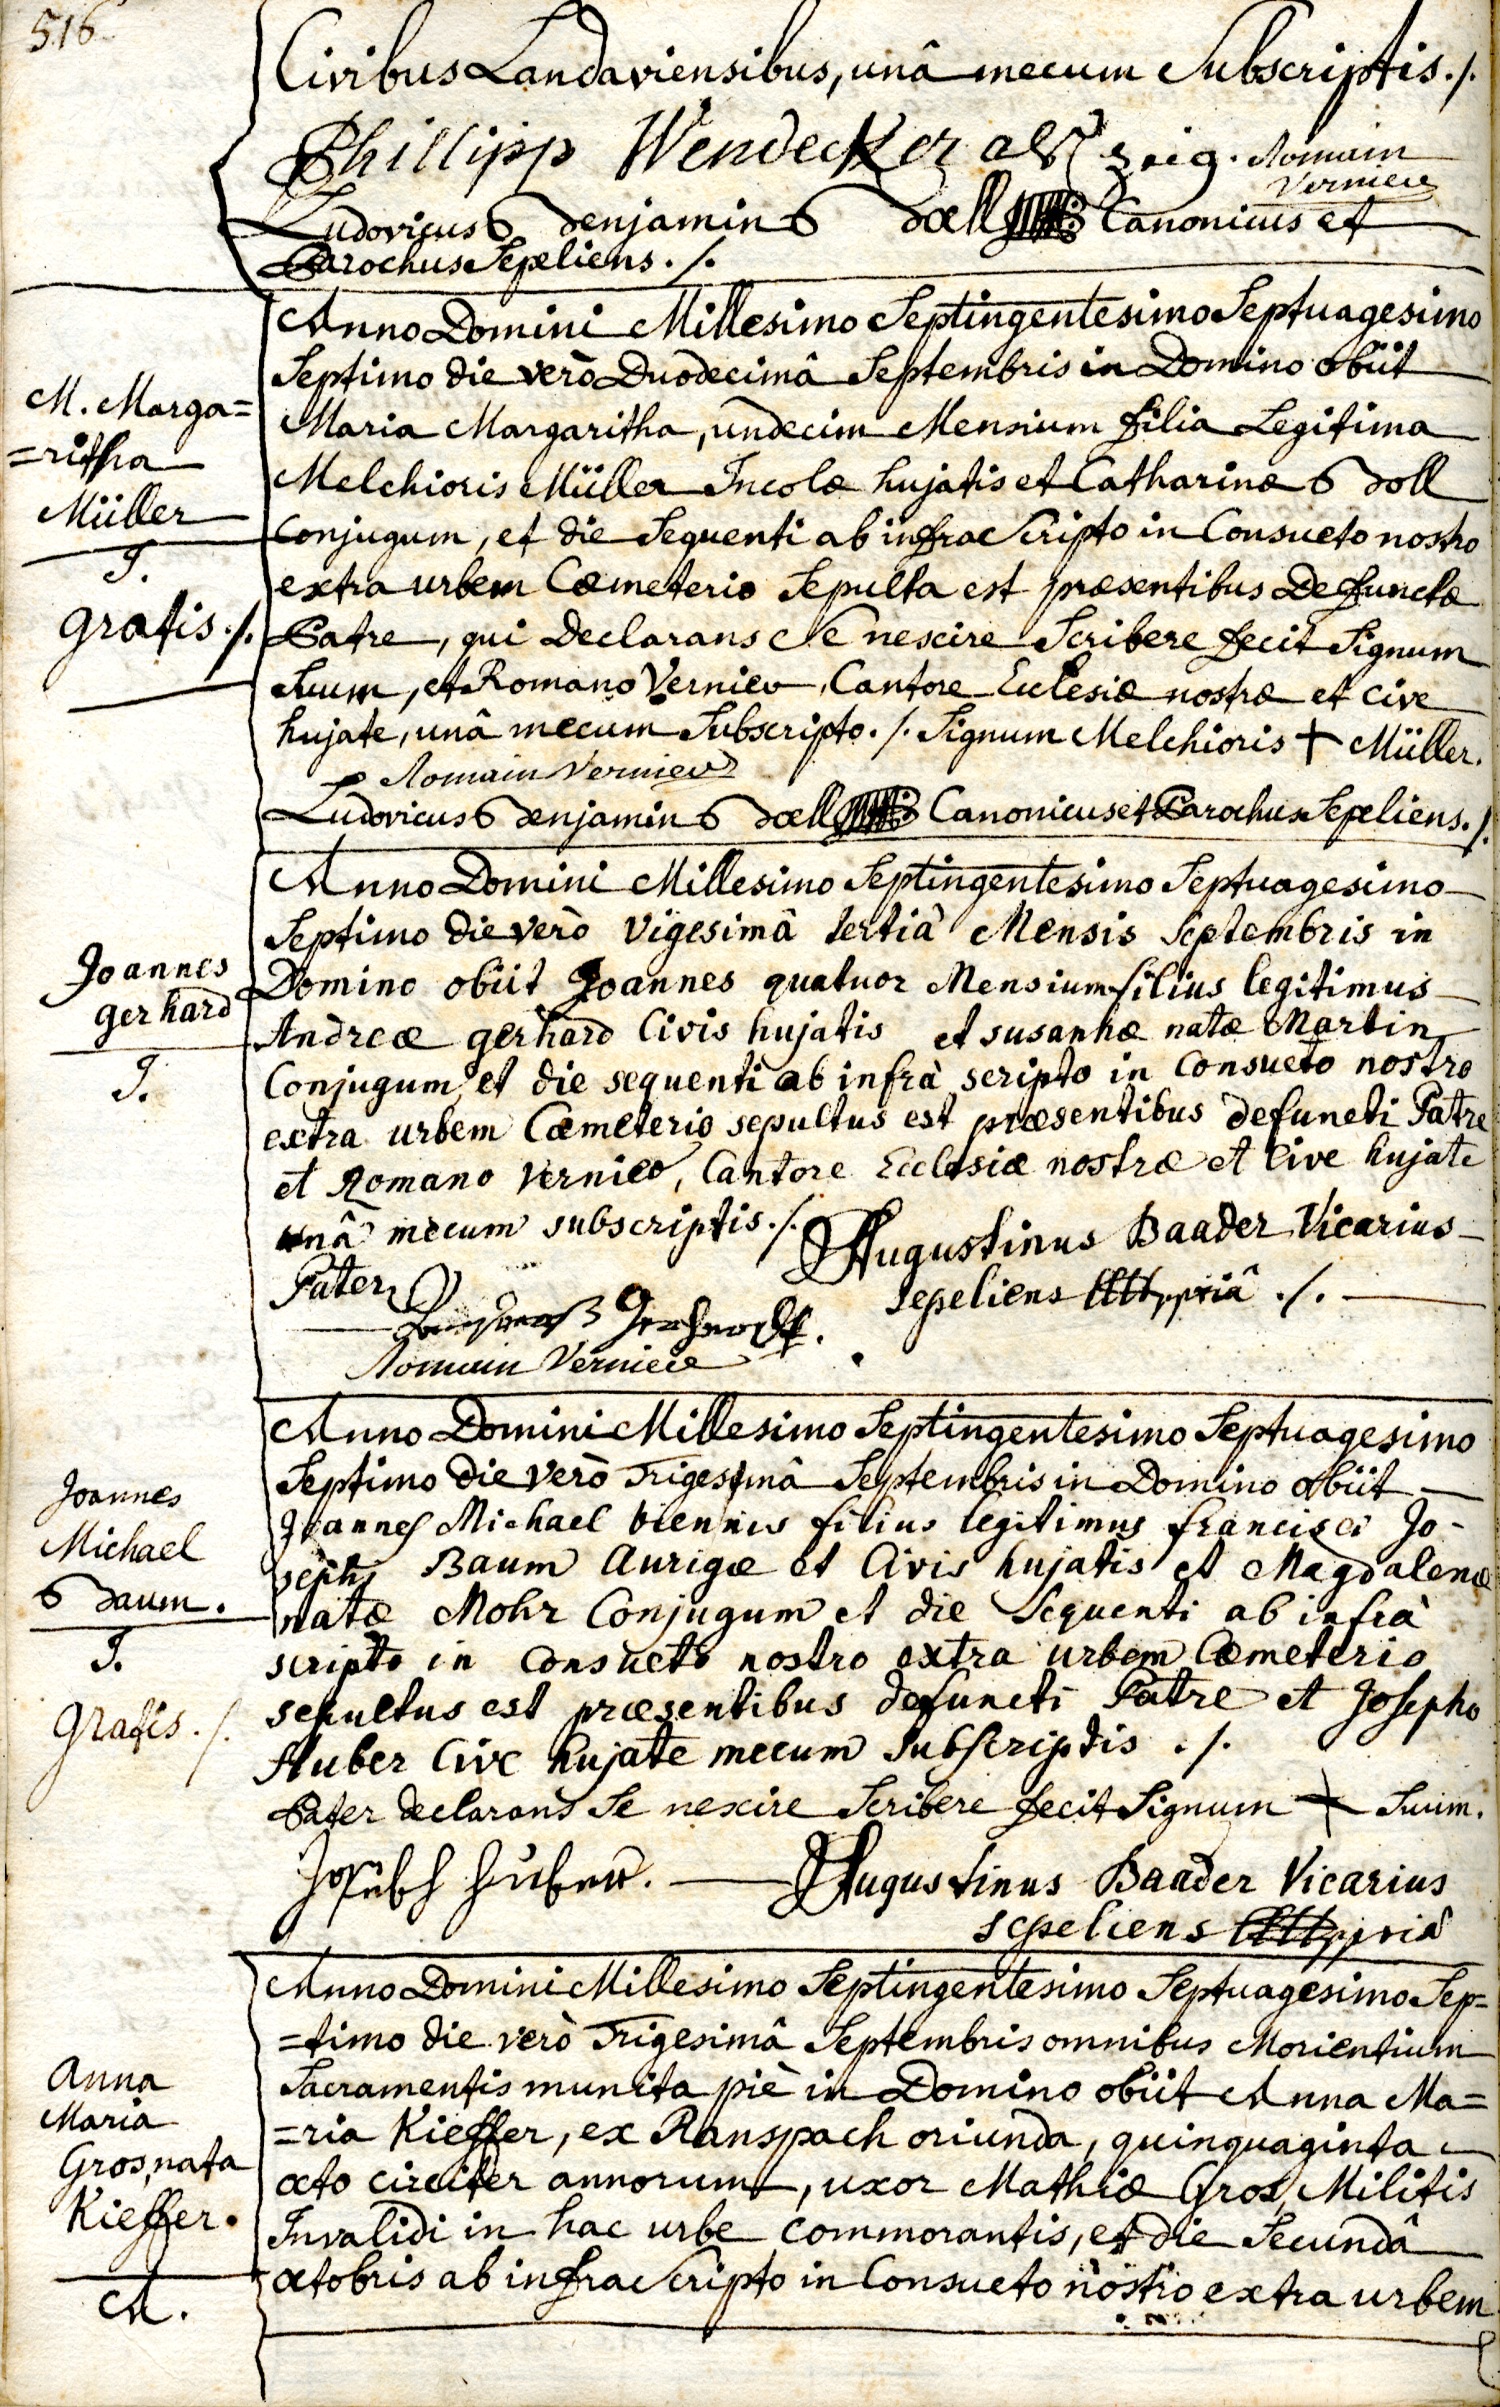 516
Civibus Landaviensibus, unâ mecum Subscriptis ./.
Phillipp Wendecker als zeig. Romain
Vernier
Ludovicus Benjamin Boell Canonicus et
Parochus Sepeliens ./.
M. Marga=
=ritha
Müller
J.
gratis ./.
Anno Domini Millesimo Septingentesimo Septuagesimo
Septimo die verò Duodecimâ Septembris in Domino obiit
Maria Margaritha, undecim Mensium filia Legitima
Melchioris Müller Incolæ hujatis et Catharinæ Boll
conjugum, et die Sequenti ab infra Scripto in Consueto nostro
extra urbem Cœmeterio Sepulta est præsentibus Defunctæ
Patre, qui Declarans Se nescire Scribere fecit Signum
Suum, et Romano Vernier, Cantore Ecclesiæ nostræ et cive
hujate, unâ mecum Subscripto ./. Signum Melchioris + Müller.
Romain Vernier
Ludovicus Benjamin Boell Canonicus et Parochus Sepeliens ./.
Joannes
gerhard
J.
Anno Domini Millesimo Septingentesimo Septuagesimo
Septimo die verò Vigesimâ tertiâ Mensis Septembris in
Domino obiit Joannes quatuor Mensium filius legitimus
Andreæ gerhard Civis hujatis et susannæ natæ Martin
Conjugum, et die sequenti ab infrà scripto in Consueto nostro
extra urbem Cœmeterio sepultus est præsentibus defuncti Patre
et Romano Vernier, Cantore Ecclesiæ nostræ et Cive hujate
unâ mecum subscriptis ./.
Augustinus Baader Vicarius
sepeliens Mppriâ ./.
Pater
Gerhardt.
Romain Vernier
Joannes
Michael
Baum.
J.
Gratis ./.
Anno Domini Millesimo Septingentesimo Septuagesimo
Septimo die verò Trigesimâ Septembris in Domino obiit
Joannes Michael biennis filius legitimus francisci Jo-
sephi Baum Aurigæ et Civis hujatis et Magdalenæ
natæ Mohr Conjugum et die Sequenti ab infrà
scripto in Consueto nostro extra urbem Cœmeterio
sepultus est præsentibus defuncti Patre et Josepho
Huber Cive hujate mecum Subscriptis ./.
Pater declarans Se nescire Scribere fecit Signum + Suum.
Joseph Huber.
Augustinus Baader Vicarius
sepeliens Mppriâ
Anna
Maria
Gros, nata
Kieffer.
A.
Anno Domini Millesimo Septingentesimo Septuagesimo Sep=
=timo die verò Trigesimâ Septembris omnibus Morientium
Sacramentis munita piè in Domino obiit Anna Ma=
=ria Kieffer, ex Ranspach oriunda, quinquaginta
octo circiter annorum, uxor Mathiæ Gros, Militis
Invalidi in hac urbe commorantis, et die Secundâ
octobris ab infra Scripto in Consueto nostro extra urbem